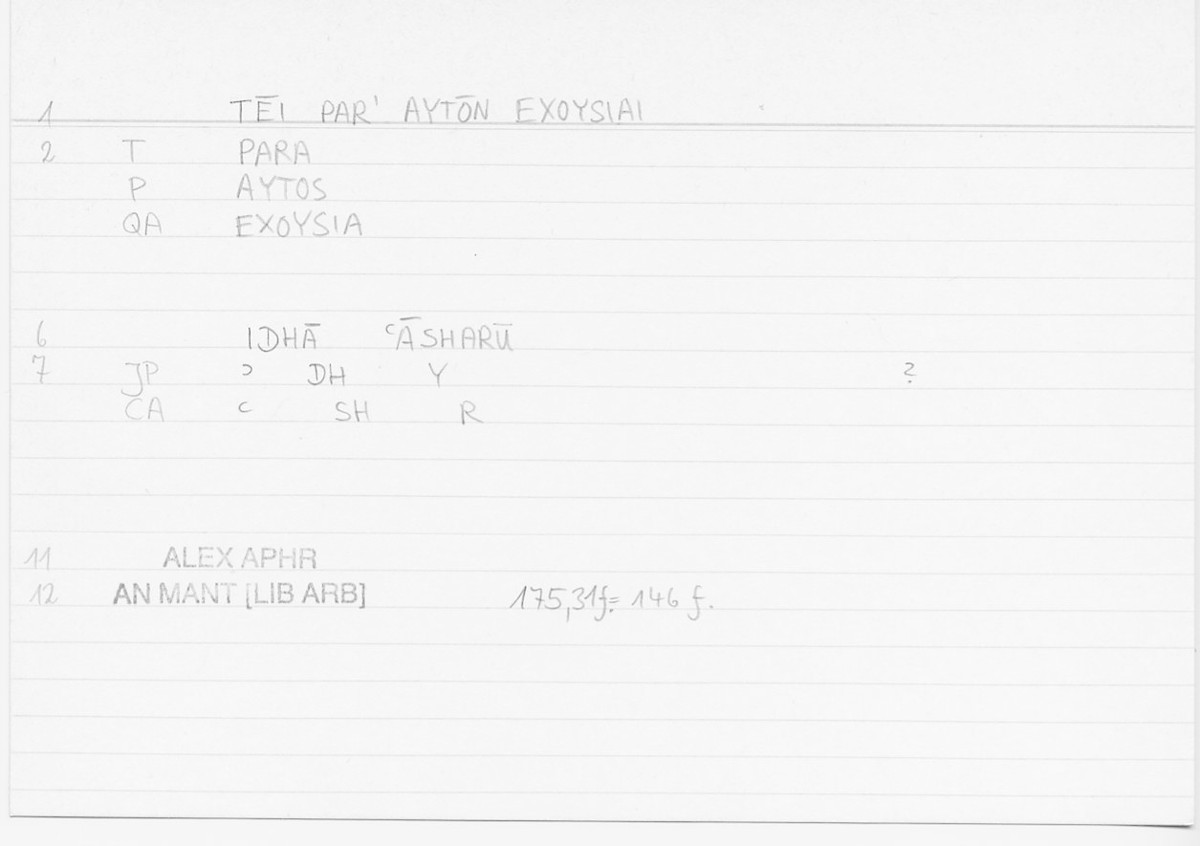 1 TĒI PAR' AYTŌN EXOYSIAI
2 T PARA
P AYTOS
QA EXOYSIA
6 IDHĀ ʿĀSHARŪ
7 JP ʾ DH Y ?
CA ʿ SH R
11 ALEX APHR
12 AN MANT [LIB ARB] 175,31f.= 146 f.